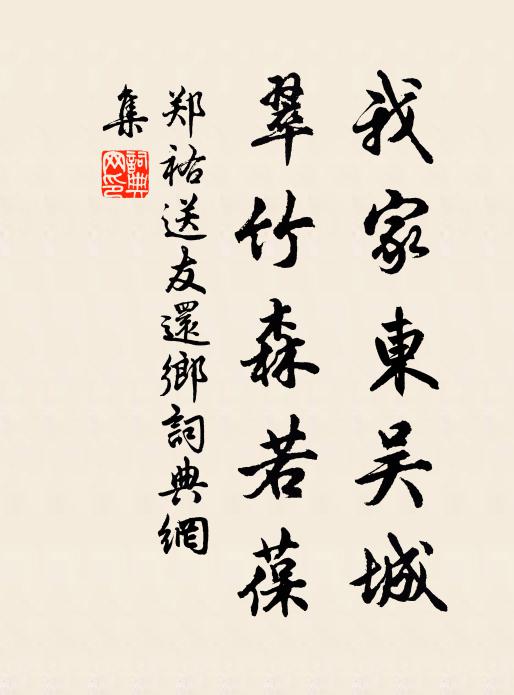 我家東吴城
翠竹森若葆
郑祐送友還鄉詞典網
集
詞典
网印